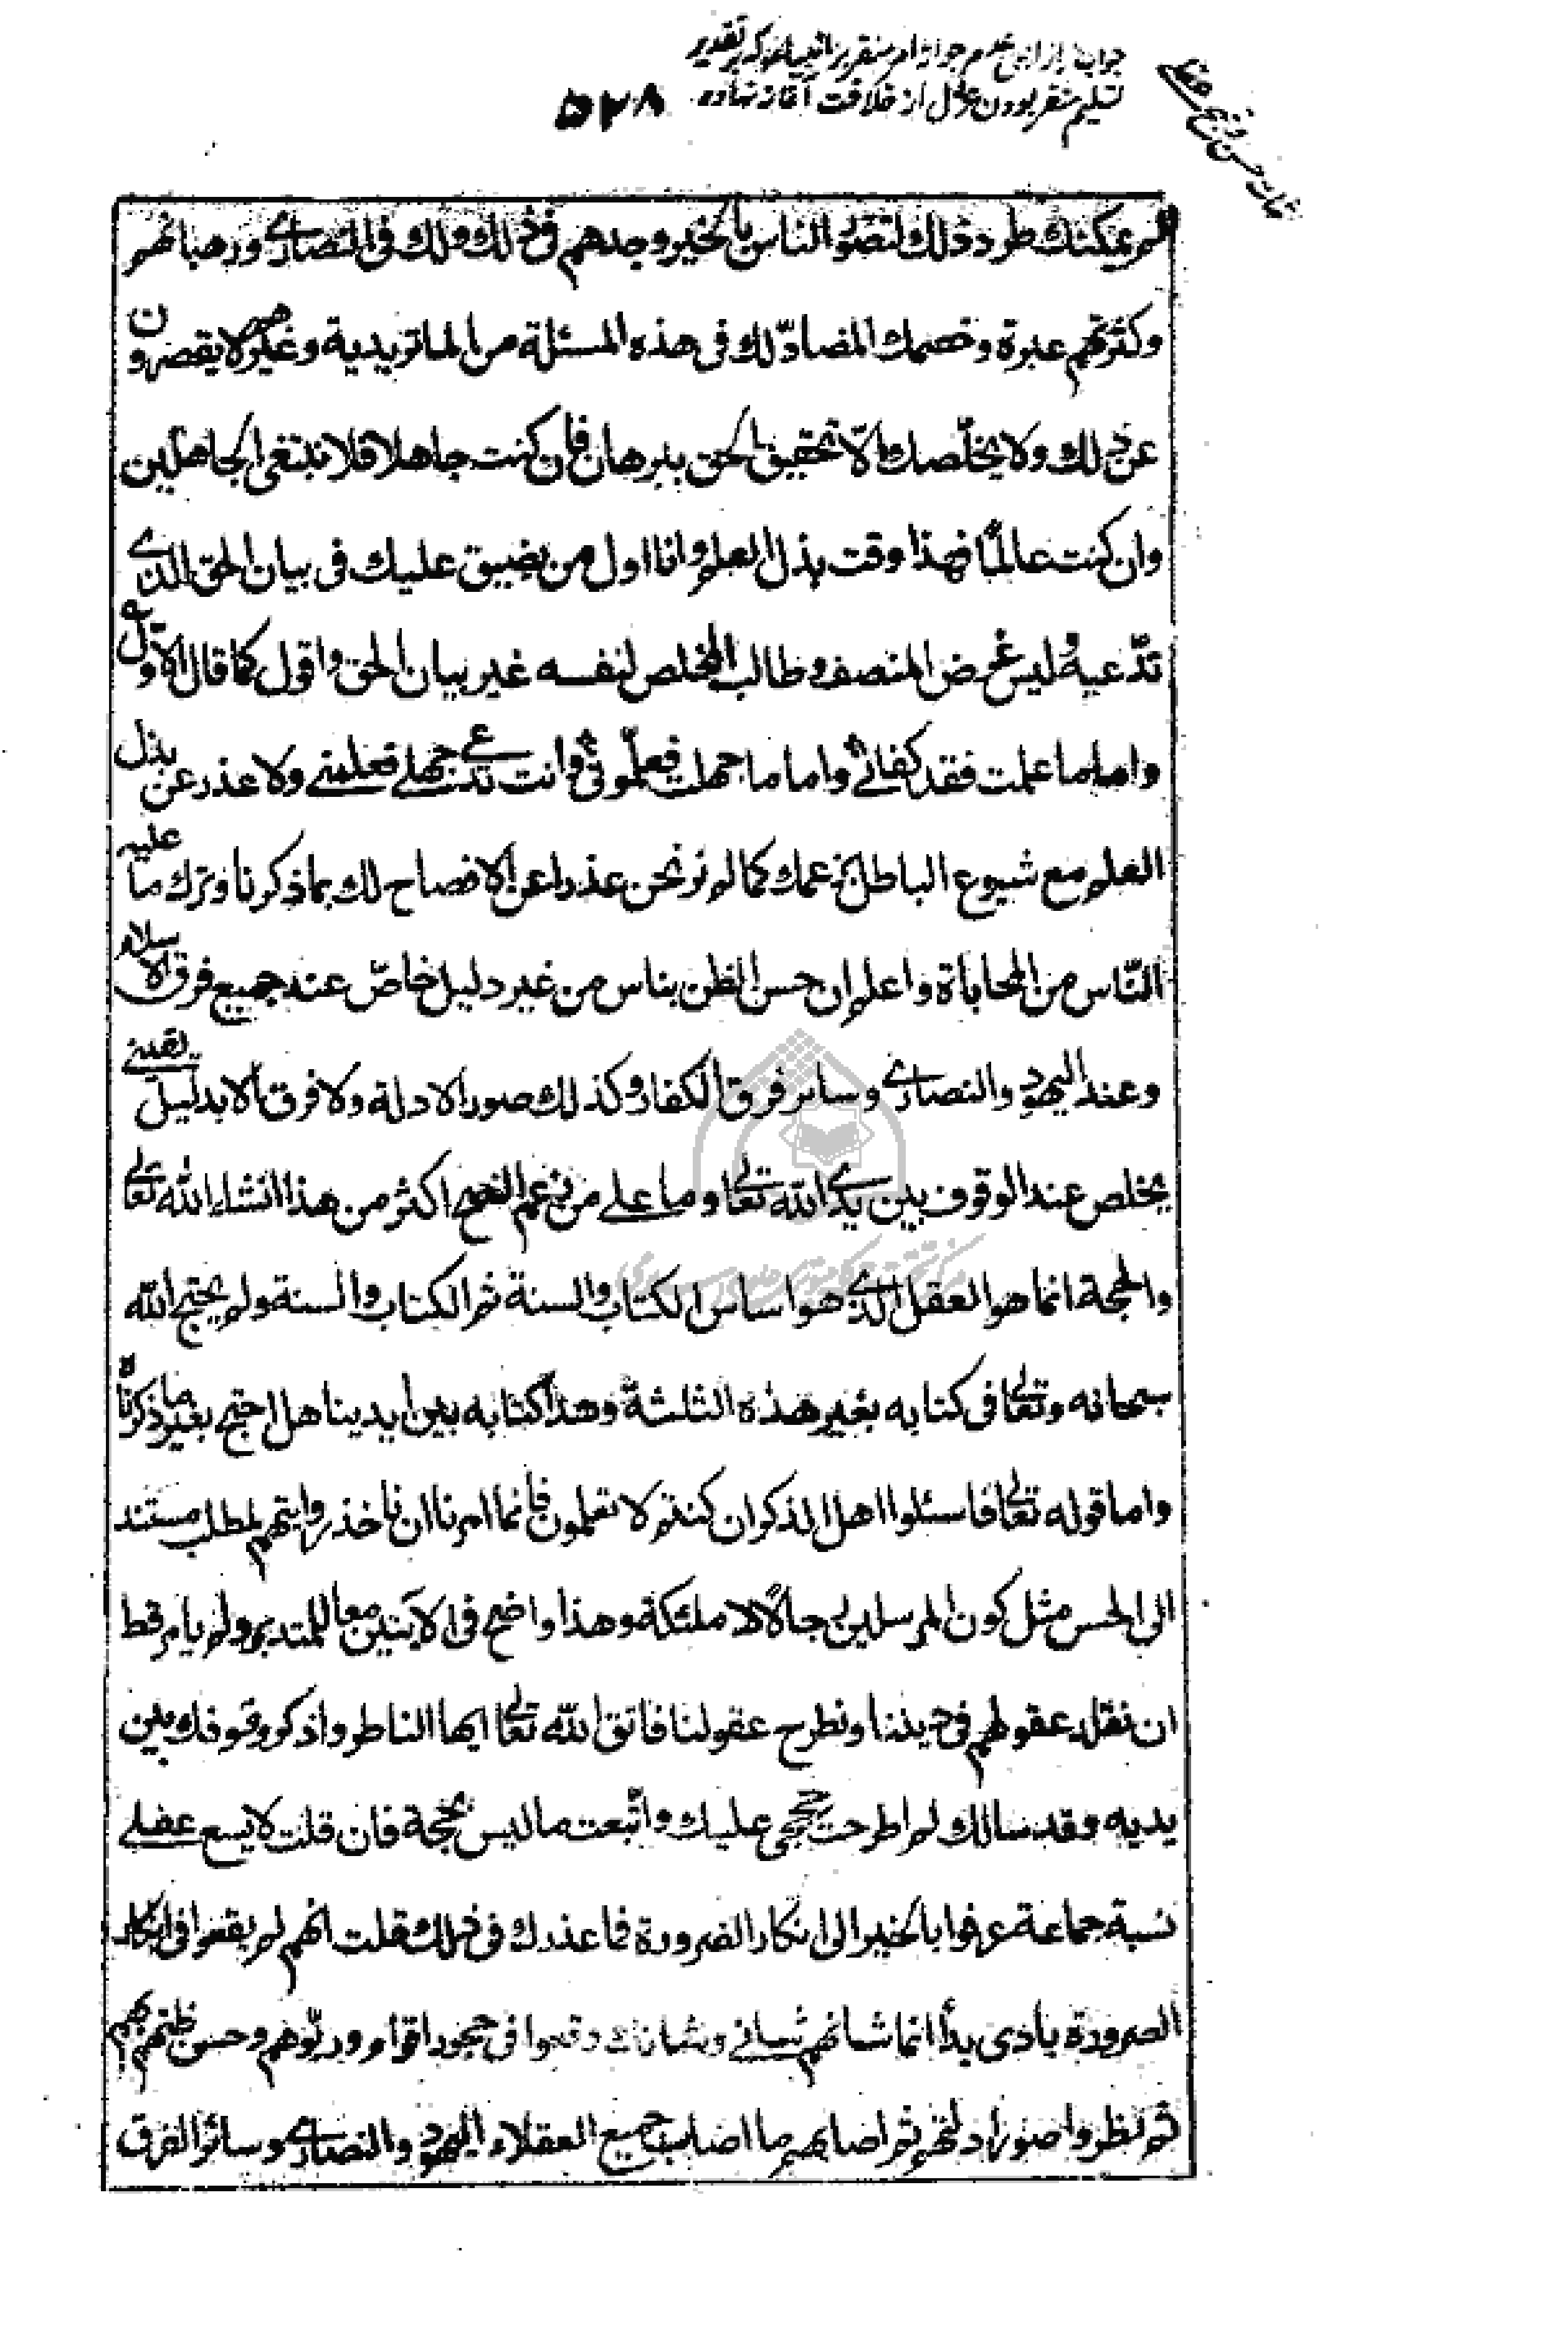 جواب از عدم جواز امر منفر بر انبیا که بر تقدیر
تسلیم منفر بودن عزل از خلافت آغاز نهاده
۵۲۸
حسن و قبح عقلی
لم يمكنك طرد ذلك لتضر والناس بالخير وجدهم فى ذلك ولك فى النصارى ورهبانهم
وكثرتهم عبرة وخصمك المضادّ لك فى هذه المسئلة من الماتريدية وغيرهم لا يقصرون
عن ذلك ولا يخلّصك الّا تحقيق الحق ببرهان فان كنت جاهلا فلا نبتغى الجاهلين
وان كنت عالمًا فهذا وقت بذل العلم وانا اول من يضيق عليك فى بيان الحق الذى
تدّعيه وليس غرض المنصف وطالب المخلص لنفسه غير بيان الحق واقول كما قال الاوّل
واما ما علمت فقد كفانى واما ما جهلت فعلّمونى وانت تدعى جهلى فعلمنى ولا عذر عن بذل
العلم مع شيوع الباطل بزعمك كما لم نر نحن عذرا عن الافصاح لك بما ذكرنا وترك ما عليه
النّاس من المحاباة واعلم ان حسن الظن بناس من غير دليل خاصّ عند جميع فرق الاسلام
وعند اليهود والنصارى وسائر فرق الكفار وكذلك صور الادلة ولا فرق الا بدليل يقينى
يخلص عند الوقوف بين يدى الله تعالى وما على من زعم النصح اكثر من هذا انشاء الله تعالى
والحجة انما هو العقل الذى هو اساس الكتاب والسنة ثم الكتاب والسنة ولم يحتج الله
سبحانه وتعالى فى كتابه بغير هذه الثلثة وهذا كتابه بين ايدينا هل احتج بغير ما ذكرناه
واما قوله تعالى فاسئلوا اهل الذكر ان كنتم لا تعلمون فانما امرنا ان ناخذ روايتهم لمطلب مستند
الى الحس مثل كون المرسلين رجالًا لا ملئكة وهذا واضح فى الآيتين معا للمتدبر ولم يامر قط
ان نقلد عقولهم فى ديننا ونطرح عقولنا فاتق الله تعالى ايها الناظر واذكر وقوفك بين
يديه وقد سالك لم اطرحت حججى عليك واتّبعت ما ليس بحجة فان قلت لا يسع عقلى
نسبة جماعة عرفوا بالخير الى انكار الضرورة فما عذرك فى ذلك قلت انهم لم يقعوا فى انكار
الضرورة بادى بدأ انما شانهم شانى وشانك وقعوا فى حجور اقوام وربّوهم وحسن ظنهم بهم
ثم نظروا صور ادلتهم ثم اصابهم ما اصاب جميع العقلاء اليهود والنصارى وسائر الفرق